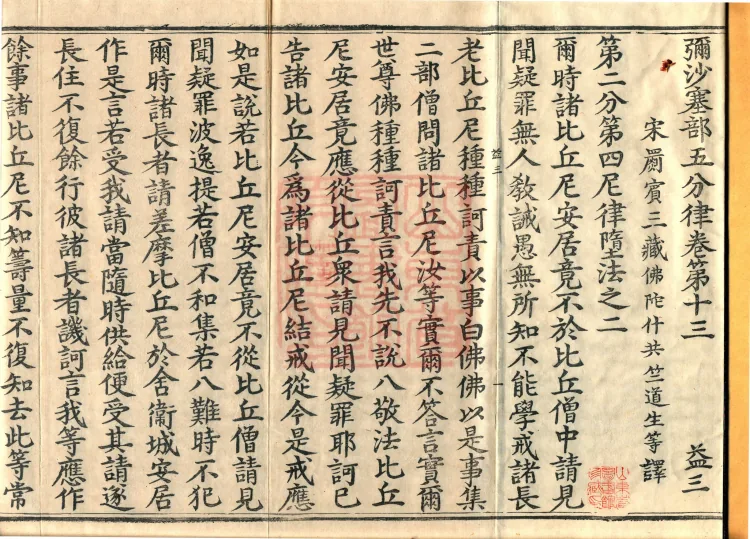 彌沙塞部五分律卷第十三 益三
宋罽賓三藏佛陀什共竺道生等譯
第二分第四尼律墮法之二
爾時諸比丘尼安居竟不於比丘僧中請見
聞疑罪無人教誡愚無所知不能學戒諸長
老比丘尼種種訶責以事白佛佛以是事集
二部僧問諸比丘尼汝等實爾不答言實爾
世尊佛種種訶責言我先不說八敬法比丘
尼安居竟應從比丘衆請見聞疑罪耶訶已
告諸比丘今爲諸比丘尼結戒從今是戒應
如是說若比丘尼安居竟不從比丘僧請見
聞疑罪波逸提若僧不和集若八難時不犯
爾時諸長者請差摩比丘尼於舍衞城安居
作是言若受我請當隨時供給便受其請遂
長住不復餘行彼諸長者譏訶言我等應作
餘事諸比丘尼不知籌量不復知去此等常
益三
一